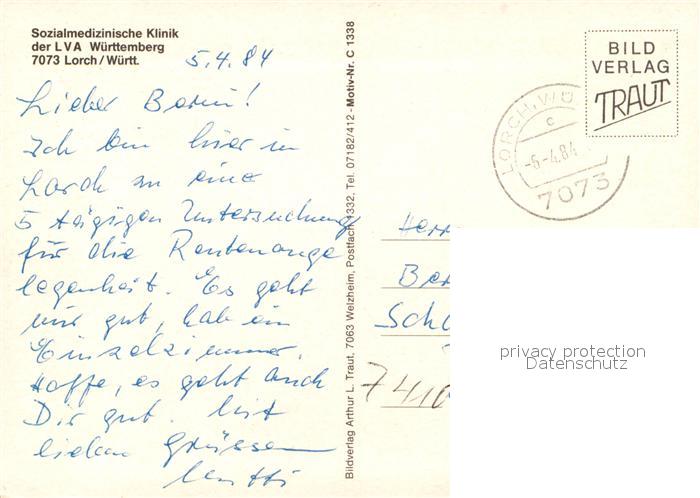 Sozialmedizinische Klinik
der LVA Württemberg
7073 Lorch/Württ.
5.4.84
Lieber
Ich bin hier in
Lorch zu eine
5 tägigen Untersuchung
für die Rentenange
legenheit. Es geht
mir gut, hab ein
Einzelzimmer.
Hoffe, es geht auch
Dir gut. Mit
lieben Grüssen
Bildverlag Arthur L. Traut, 7063 Welzheim, Postfach 1332, Tel. 07182/412 - Motiv-Nr. C 1338
BILD
VERLAG
TRAUT
LORCH, WÜ
c
-6-4.84
7073
Herr
Be
Sch
7410
privacy protection
Datenschutz